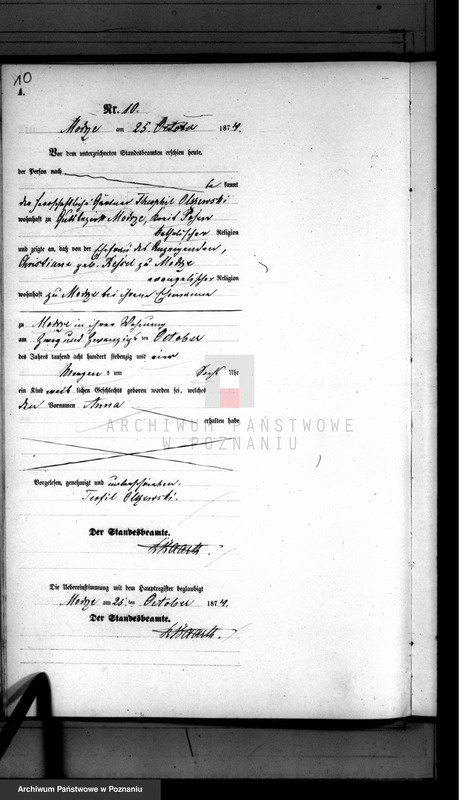 10
A.
Nr. 10.
Modze am 25. October 1874.
Vor dem unterzeichneten Standesbeamten erschien heute,
der Person nach
be kannt
der herrschaftliche Gärtner Theophil Olszewski
wohnhaft zu Gutsbezirk Modze, Kreis Posen
katholischer Religion
und zeigte an, daß von der Ehefrau des Anzeigenden,
Christiane geb. Kessel zu Modze
evangelischer Religion
wohnhaft zu Modze bei ihrem Ehemanne
zu Modze in ihrer Wohnung
am Zwei und Zwanzigsten October
des Jahres tausend acht hundert siebenzig und vier
Morgens um Sechs Uhr
ein Kind weib lichen Geschlechts geboren worden sei, welches
den Vornamen Anna
erhalten habe
Vorgelesen, genehmigt und unterschrieben.
Teofil Olszewski.
Der Standesbeamte.
Die Uebereinstimmung mit dem Hauptregister beglaubigt
Modze am 25. ten October 1874.
Der Standesbeamte.
ARCHIWUM PAŃSTWOWE
W POZNANIU
Archiwum Państwowe w Poznaniu